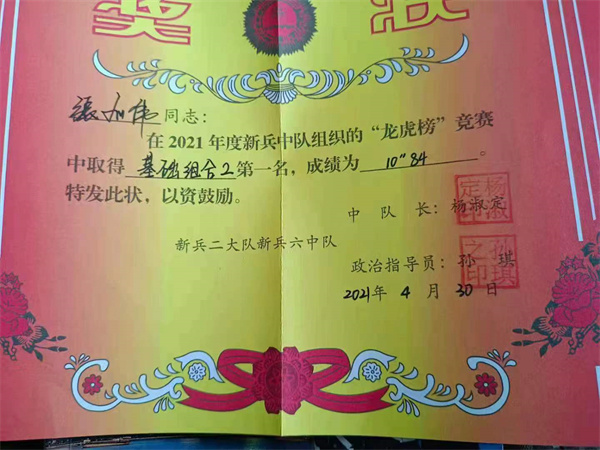 奖状
同志：
在2021年度新兵中队组织的“龙虎榜”竞赛
中取得 基础组合2 第一名，成绩为 10"84 。
特发此状，以资鼓励。
中队长：杨淑定
新兵二大队新兵六中队
政治指导员：孙琪
2021年4月30日
杨淑定印
孙琪之印